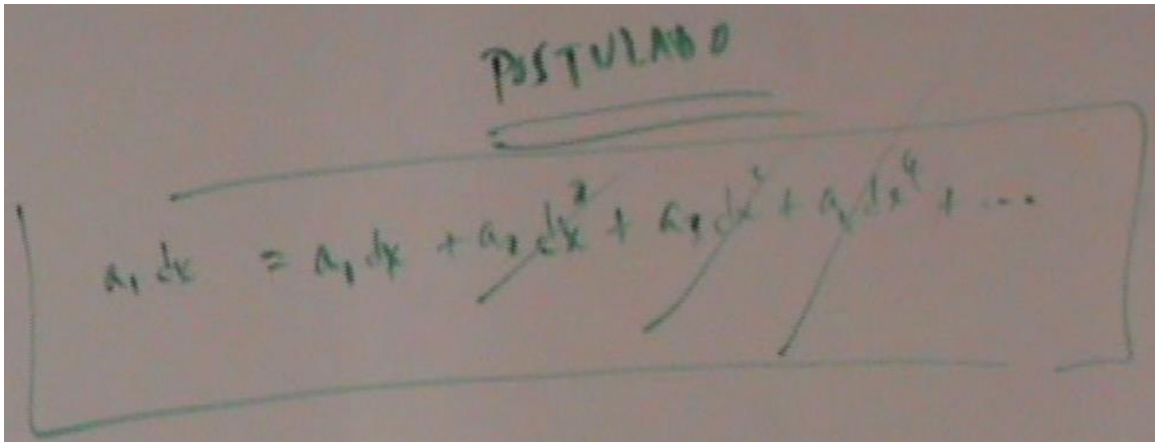 POSTULADO
a₁ dx = a₁ dx + a₂ dx² + a₃ dx³ + a₄ dx⁴ + ...